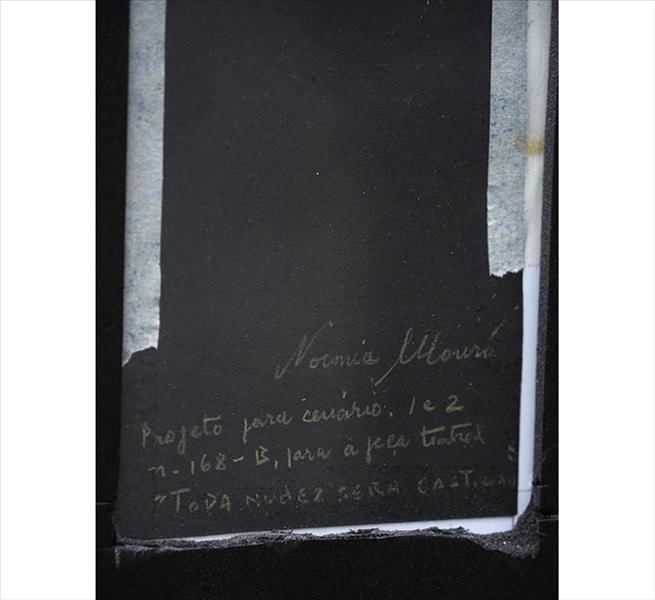 Noemia Mourã
Projeto para cenário. 1 e 2
n. 168 - B, para a peça teatral
"TODA NUDEZ SERÁ CASTIGADA"